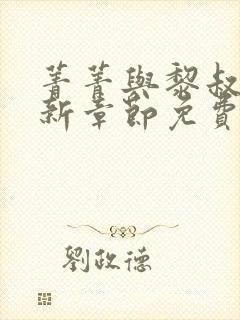 菁菁與黎叔
新章節免費
劉政德